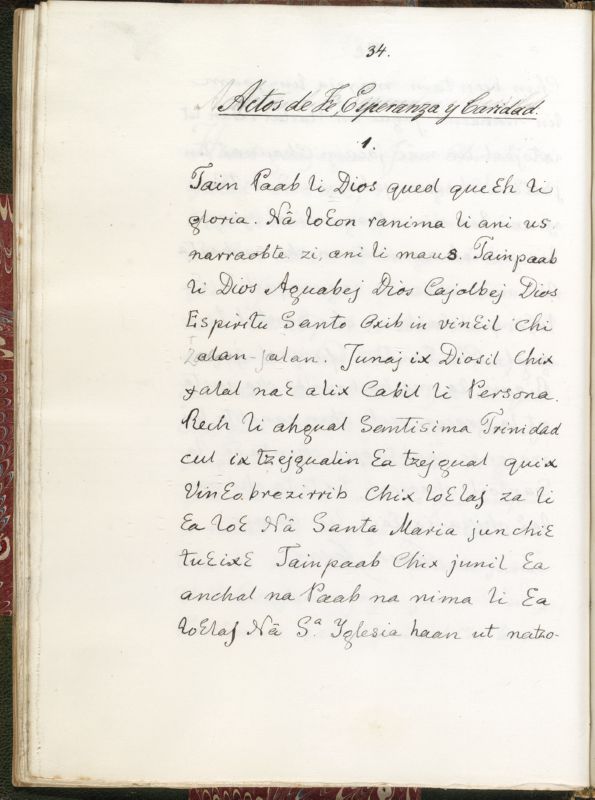 34.
Actos de Fe, Esperanza y Caridad.
1.
Tain Paab li Dios qued queɛh li
gloria. Nâ loɛon ranima li ani us
narraobte zi, ani li maus. Tainpaab
li Dios Aguabej Dios Cajolbej Dios
Espiritu Santo Oxib in vinɛil chi
jalan-jalan. Junaj ix Diosil Chix
jalal naɛ alix Cabil li Persona.
Rech li ahgual Santisima Trinidad
cul ix tzejgualin ɛa tzejgual quix
Vinɛobrezirrib Chix loɛlaj za li
ɛa loɛ Nâ Santa Maria junchiɛ
tuɛixɛ Tainpaab Chix junil ɛa
anchal na Paab na nima li ɛa
loɛlaj Nâ S.ª Yglesia haan ut natzo-